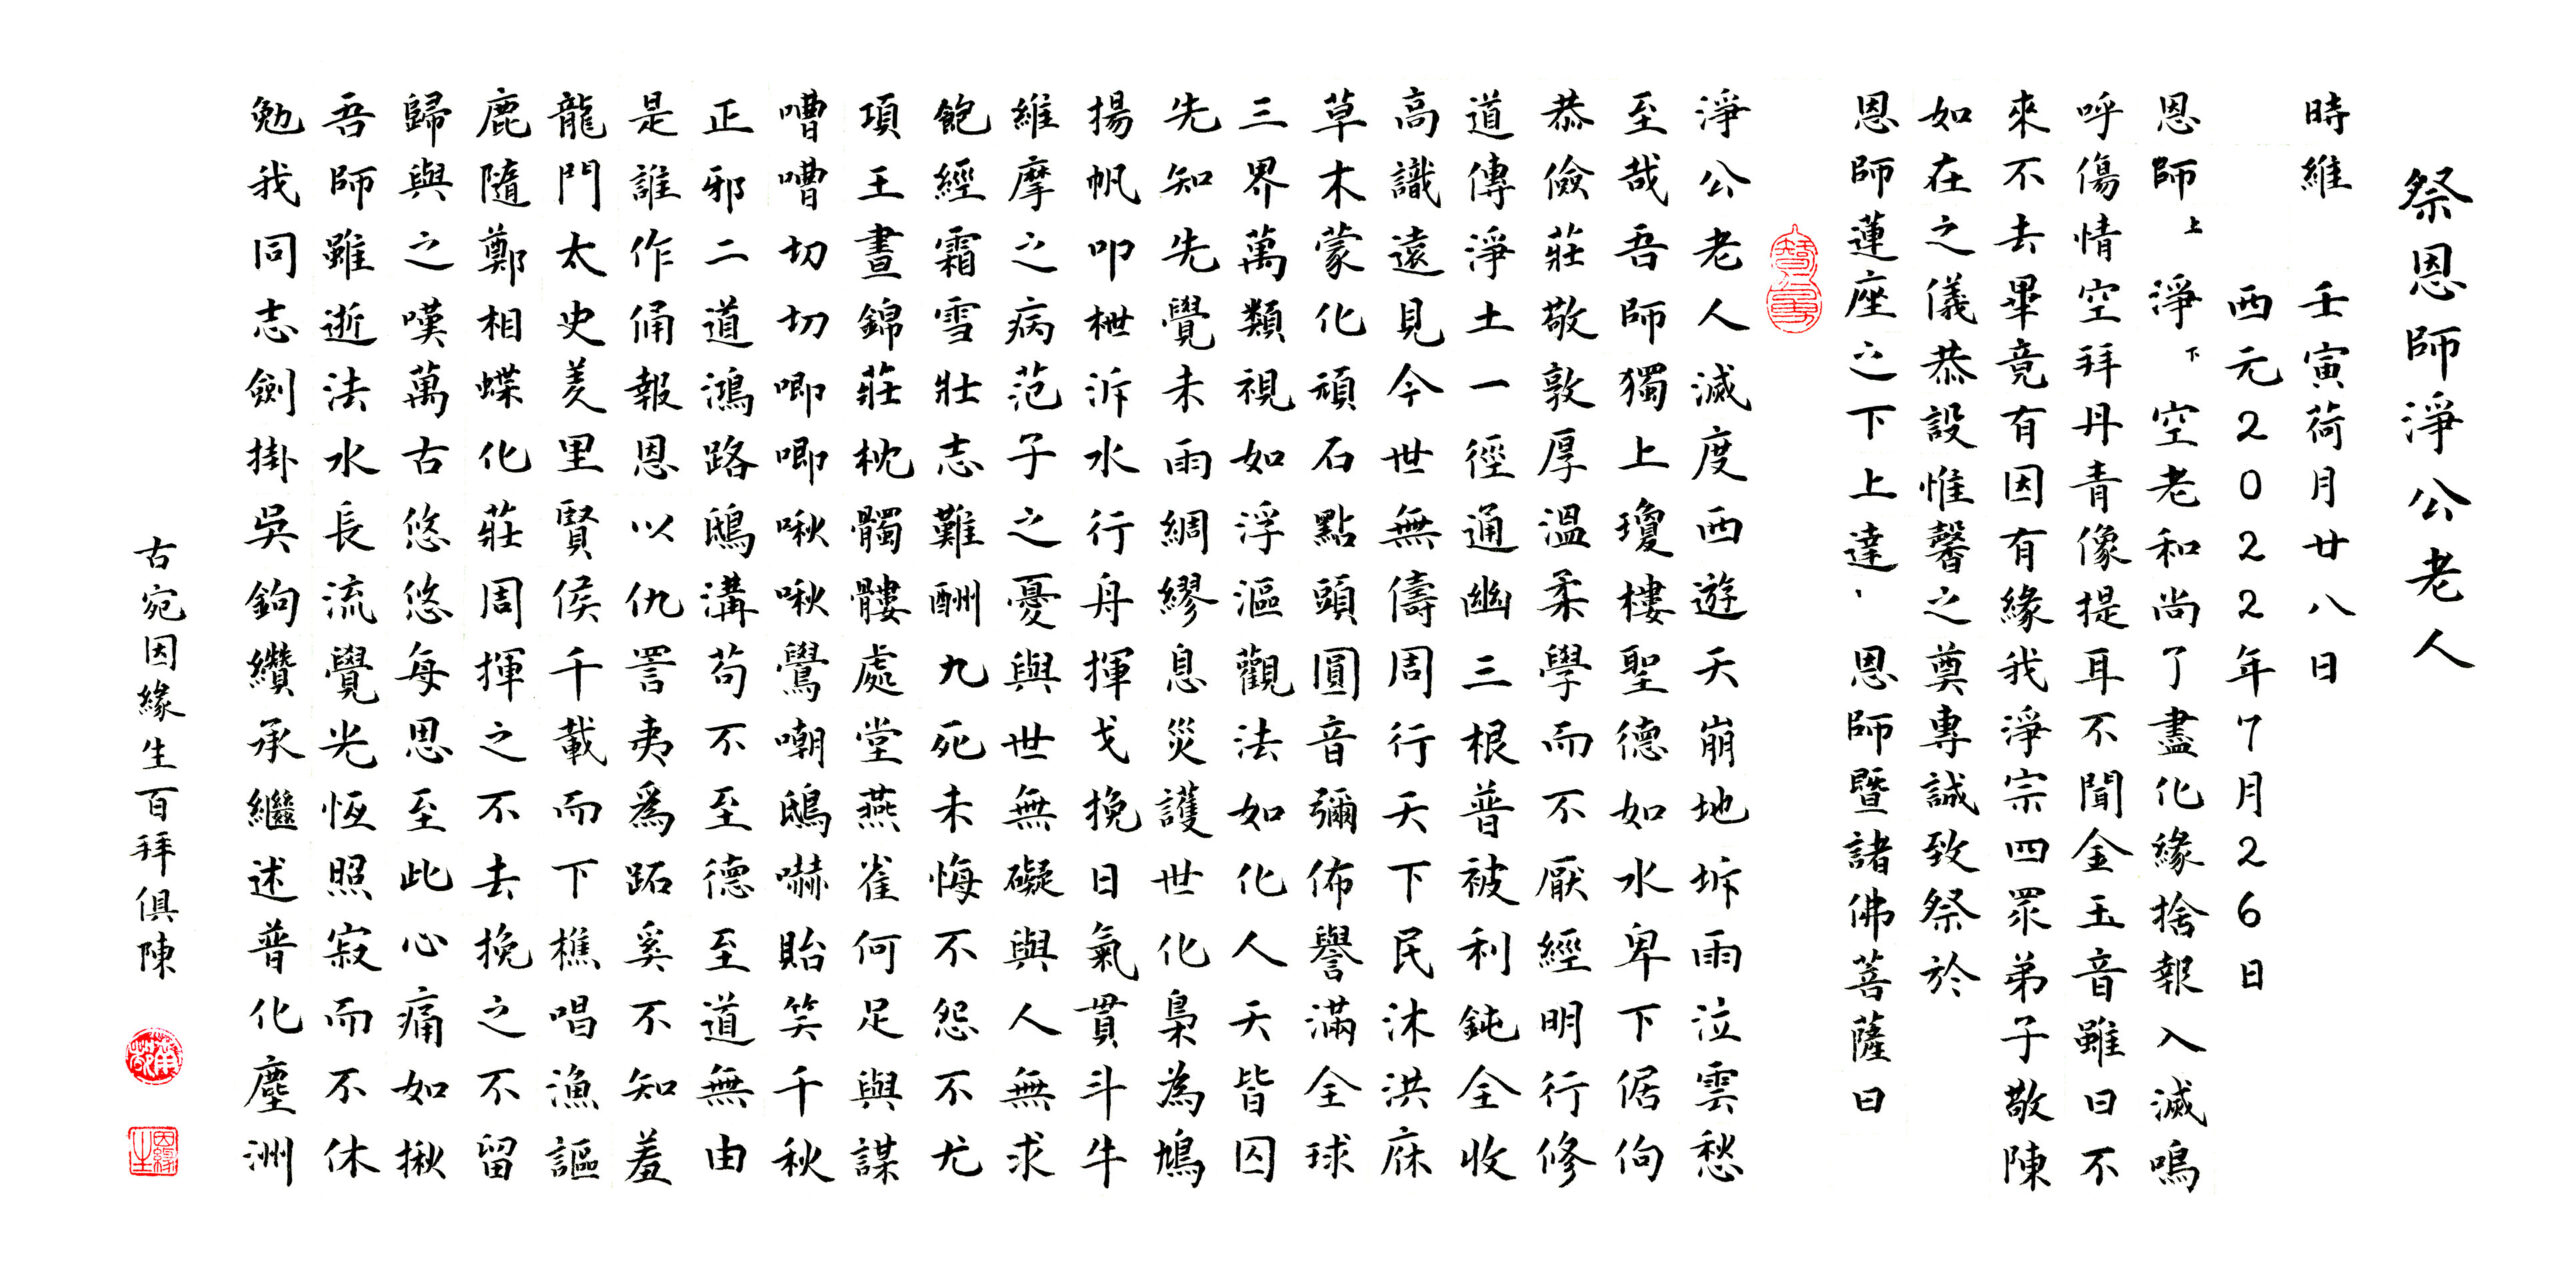 祭恩師淨公老人
時維　壬寅荷月廿八日
西元2022年7月26日
恩師上淨下空老和尚了盡化緣捨報入滅鳴
呼傷情空拜丹青像提耳不聞金玉音雖曰不
來不去畢竟有因有緣我淨宗四眾弟子敬陳
如在之儀恭設惟馨之奠專誠致祭於
恩師蓮座之下上達、恩師暨諸佛菩薩曰
淨公老人滅度西遊天崩地坼雨泣雲愁
至哉吾師獨上瓊樓聖德如水卑下倨佝
恭儉莊敬敦厚溫柔學而不厭經明行修
道傳淨土一徑通幽三根普被利鈍全收
高識遠見今世無儔周行天下民沐洪庥
草木蒙化頑石點頭圓音彌佈譽滿全球
三界萬類視如浮漚觀法如化人天皆囚
先知先覺未雨綢繆息災護世化梟為鳩
揚帆叩枻泝水行舟揮戈挽日氣貫斗牛
維摩之病范子之憂與世無礙與人無求
飽經霜雪壯志難酬九死未悔不怨不尤
項王晝錦莊枕髑髏處堂燕雀何足與謀
嘈嘈切切唧唧啾啾鸒嘲鴟嚇貽笑千秋
正邪二道鴻路鴟溝苟不至德至道無由
是誰作俑報恩以仇詈夷爲跖奚不知羞
龍門太史羑里賢侯千載而下樵唱漁謳
鹿隨鄭相蝶化莊周揮之不去挽之不留
歸與之嘆萬古悠悠每思至此心痛如揪
吾師雖逝法水長流覺光恆照寂而不休
勉我同志劍掛吳鉤纘承繼述普化塵洲
古宛因緣生百拜俱陳
因緣生